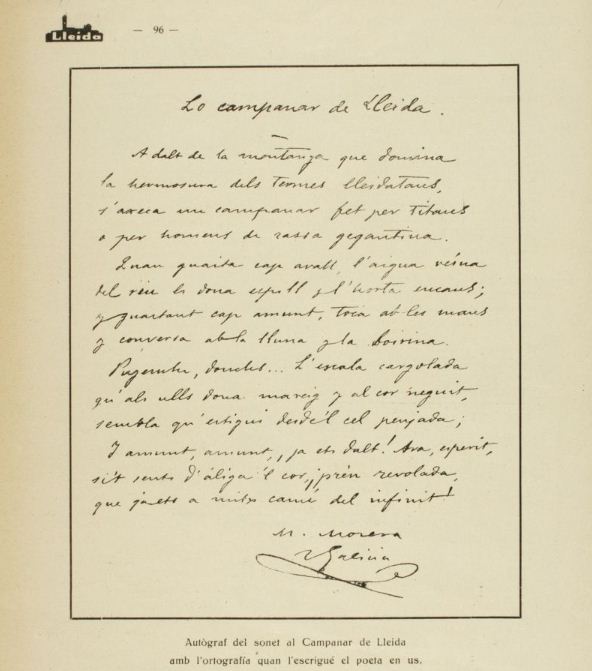 Lleida
— 96 —
Lo campanar de Lleida.
A dalt de la montanya que domina
la hermosura dels termes lleidatans,
s'axeca un campanar fet per titans
o per homens de rassa gegantina.
Quan guaita cap avall, l'aigua vehina
del riu li dona espill y l'horta encans;
y guaitant cap amunt, toca ab les mans
y conversa ab la lluna y la boirina.
Pugemhi, donchs... L'escala cargolada
qu'als ulls dona mareig y al cor neguit,
sembla qu'estigui desde'l cel penjada;
Y amunt, amunt, ja ets dalt! Ara, esperit,
si't sents d'áliga'l cor, ¡prén revolada,
que ja ets a mitx camí del infinit!
M. Morera
y Galicia
Autògraf del sonet al Campanar de Lleida
amb l'ortografía quan l'escrigué el poeta en us.